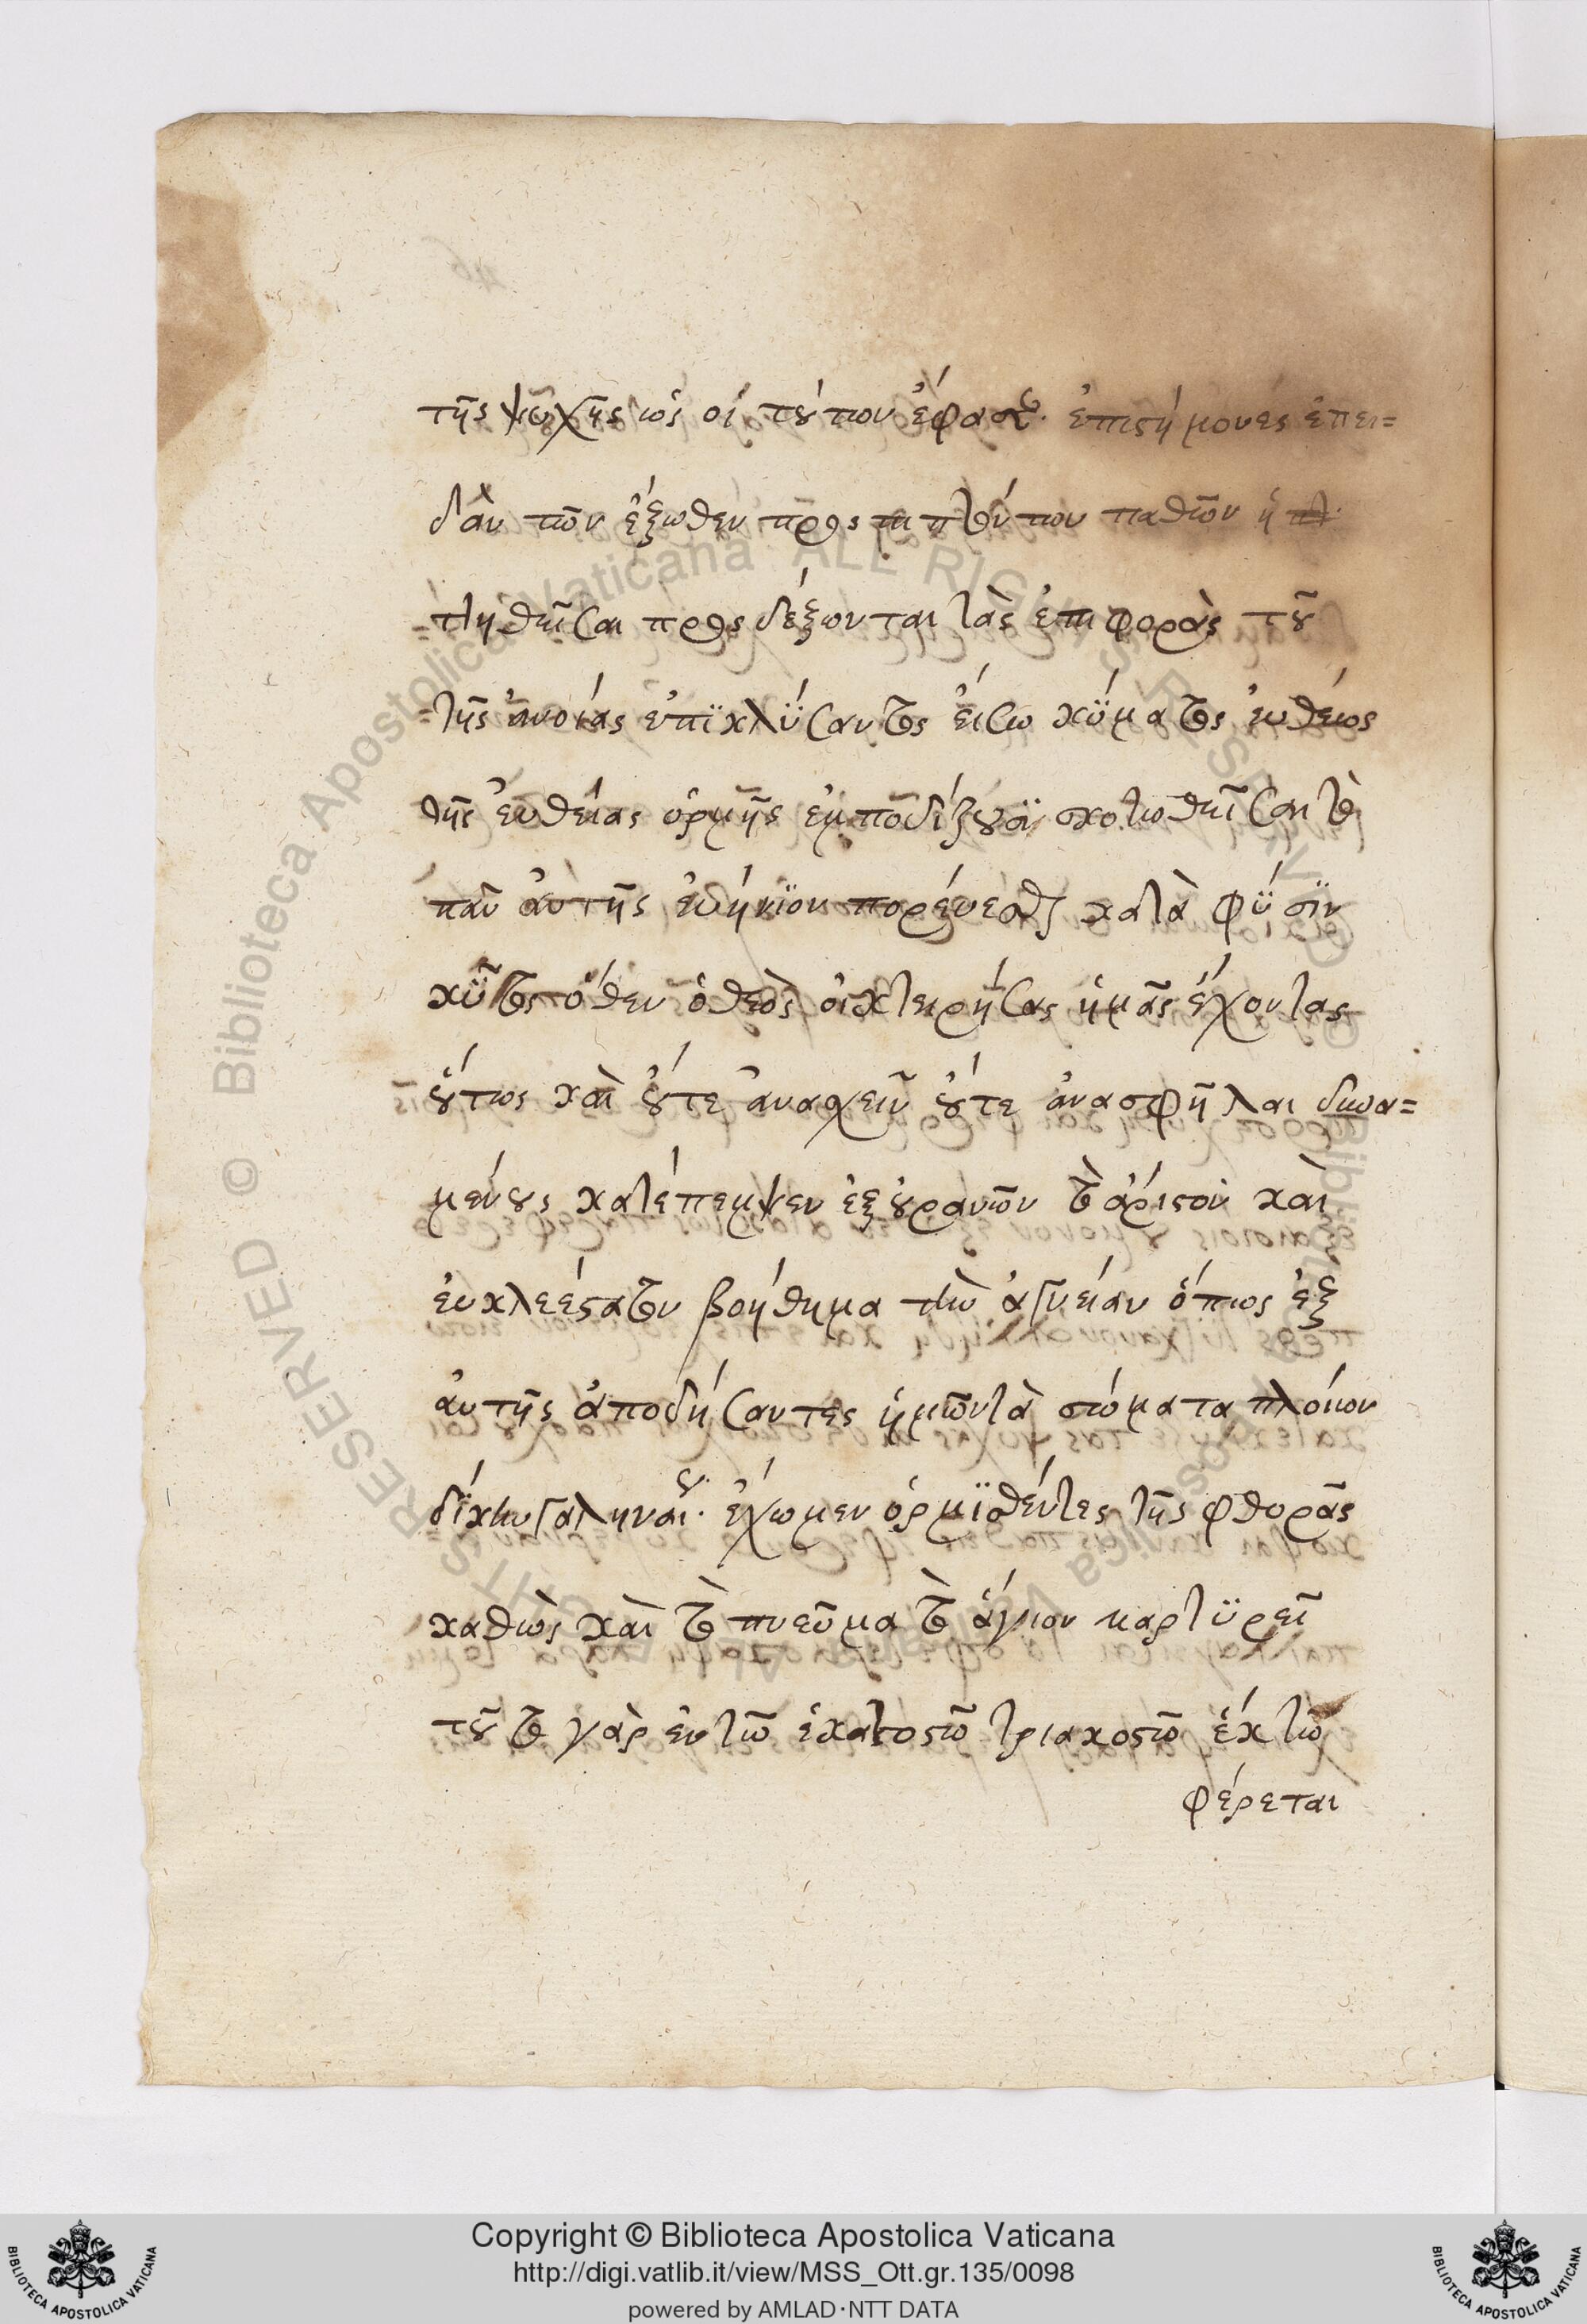 τῆς ψυχῆς ὡς οἱ τούτων ἔφασαν ἐπιστήμονες ἐπει=
δὰν τῶν ἔξωθεν προςπιπτόντων παθῶν ἡ πλ
πληθεῖσαι προςδέξωνται τὰς ἐπιφορὰς τοῦ
τῆς ἀνοίας ἐπϊκλΰσαντος εἴσω κΰματος εὐθέως
τῆς εὐθείας ὁρμῆς ἐμποδίζουσϊ σκοτωθεῖσαι τὸ
πᾶν αὐτῆς εὐήνϊον πορεύεσθαι κατὰ φΰσϊν
κΰτος ὅθεν ὁ θεὸς οἰκτειρήσας ἡμᾶς ἔχοντας
οὕτως καὶ οὔτε ἀνασχεῖν οὔτε ἀνασφῆλαι δυνα=
μένους κατέπεμψεν ἐξ οὐρανῶν τὸ ἄριστον καὶ
εὐκλεέστατον βοήθημα τὴν ἁγνείαν ὅπως ἐξ
αὐτῆς ἀποδήσαντες ἡμῶν τὰ σώματα πλοίων
δίκην γαλήναν ἔχωμεν ὁρμϊσθέντες τῆς φθορᾶς
καθὼς καὶ τὸ πνεῦμα τὸ ἅγιον μαρτϋρεῖ
τοῦτο γὰρ ἐν τῶ ἑκατοστῶ τριακοστῶ ἕκτω
φέρεται
Copyright © Biblioteca Apostolica Vaticana
http://digi.vatlib.it/view/MSS_Ott.gr.135/0098
powered by AMLAD·NTT DATA